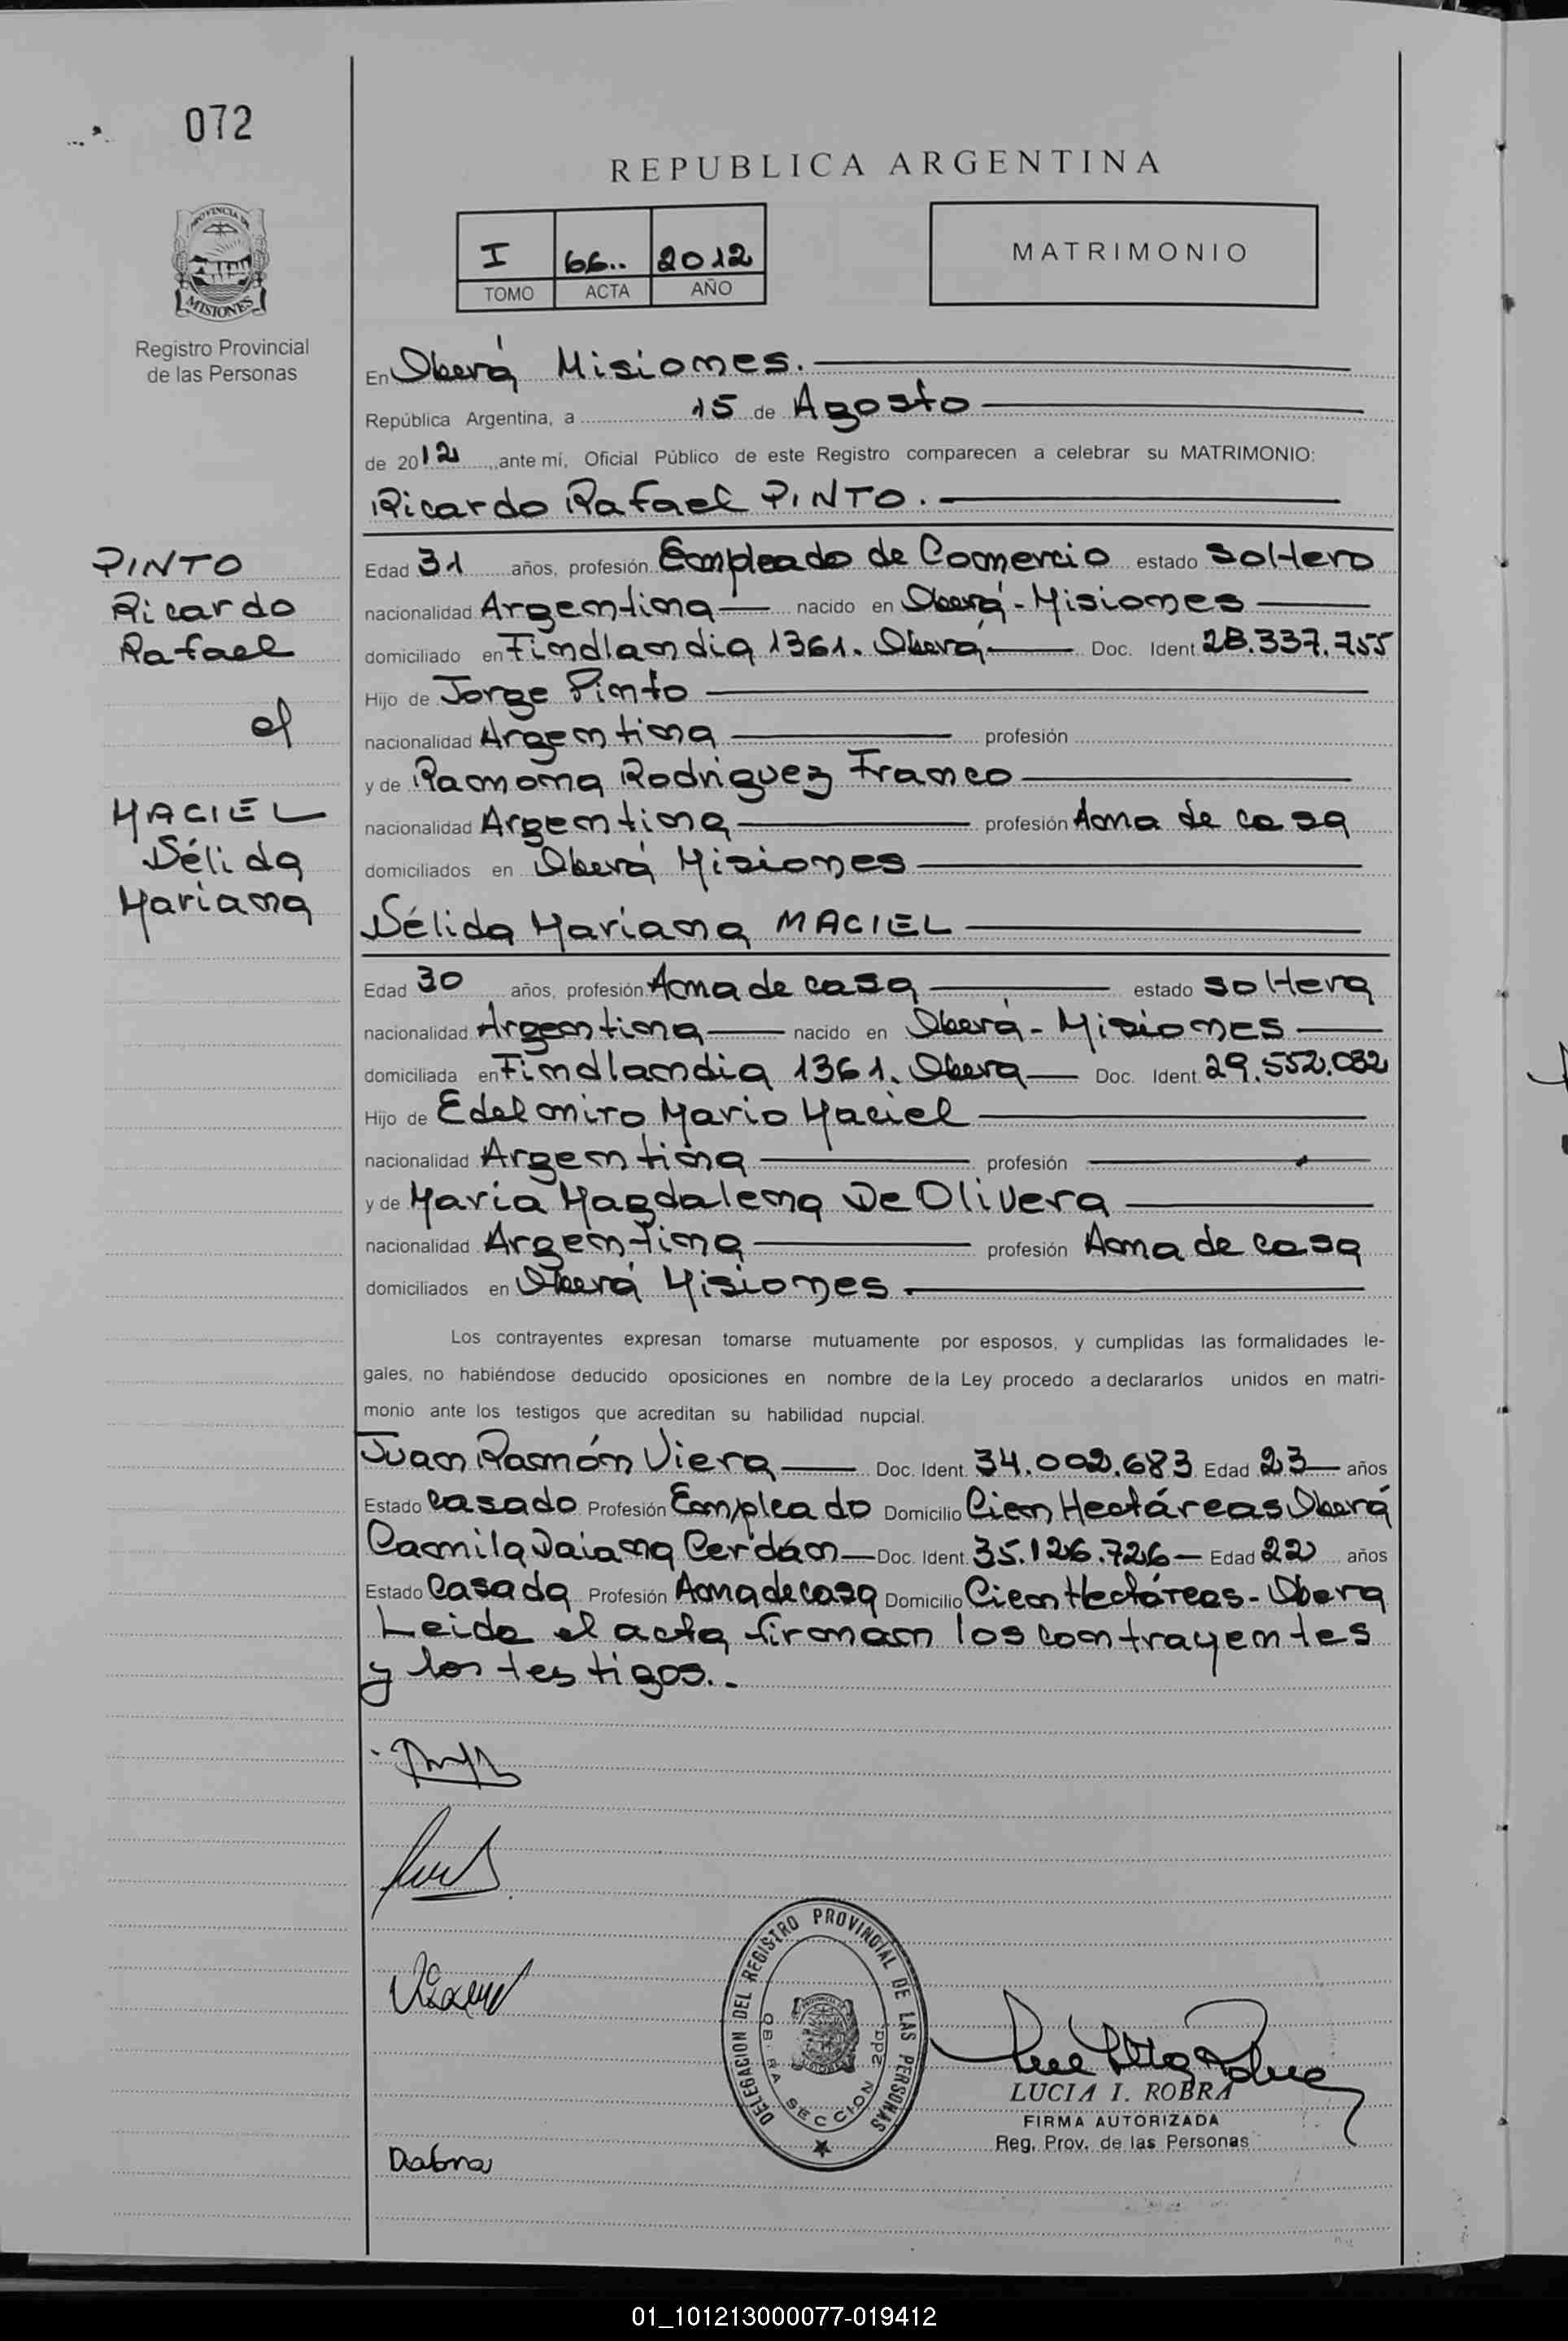 072
REPUBLICA ARGENTINA
PROVINCIA DE
MISIONES
Registro Provincial
de las Personas
I 66.. 2012
TOMO ACTA AÑO
MATRIMONIO
En Oberá Misiones.
República Argentina, a 15 de Agosto
de 2012 ante mí, Oficial Público de este Registro comparecen a celebrar su MATRIMONIO:
Ricardo Rafael PINTO.
PINTO
Ricardo
Rafael
MACIEL
Délida
Mariana
Edad 31 años, profesión Empleado de Comercio estado soltero
nacionalidad Argentina nacido en Oberá - Misiones
domiciliado en Findlandia 1361. Oberá Doc. Ident 28.337.755
Hijo de Jorge Pinto
nacionalidad Argentina profesión
y de Ramona Rodriguez Franco
nacionalidad Argentina profesión Ama de casa
domiciliados en Oberá Misiones
Délida Mariana MACIEL
Edad 30 años, profesión Ama de casa estado soltera
nacionalidad Argentina nacido en Oberá - Misiones
domiciliada en Findlandia 1361. Oberá Doc. Ident. 29.552.032
Hijo de Edelmiro Mario Maciel
nacionalidad Argentina profesión
y de Maria Magdalena De Olivera
nacionalidad Argentina profesión Ama de casa
domiciliados en Oberá Misiones.
Los contrayentes expresan tomarse mutuamente por esposos, y cumplidas las formalidades le-
gales, no habiéndose deducido oposiciones en nombre de la Ley procedo a declararlos unidos en matri-
monio ante los testigos que acreditan su habilidad nupcial.
Juan Ramón Viera Doc. Ident. 34.002.683 Edad 23 años
Estado Casado Profesión Empleado Domicilio Cien Hectáreas Oberá
Camila Daiana Cerdán Doc. Ident. 35.126.726 Edad 22 años
Estado Casada Profesión Ama de casa Domicilio Cien Hectáreas - Obera
Leida el acta firman los contrayentes
y los testigos..
DELEGACION DEL REGISTRO PROVINCIAL DE LAS PERSONAS
OBERA SECCION 2da.
LUCIA I. ROBRA
FIRMA AUTORIZADA
Reg. Prov. de las Personas
01_101213000077-019412